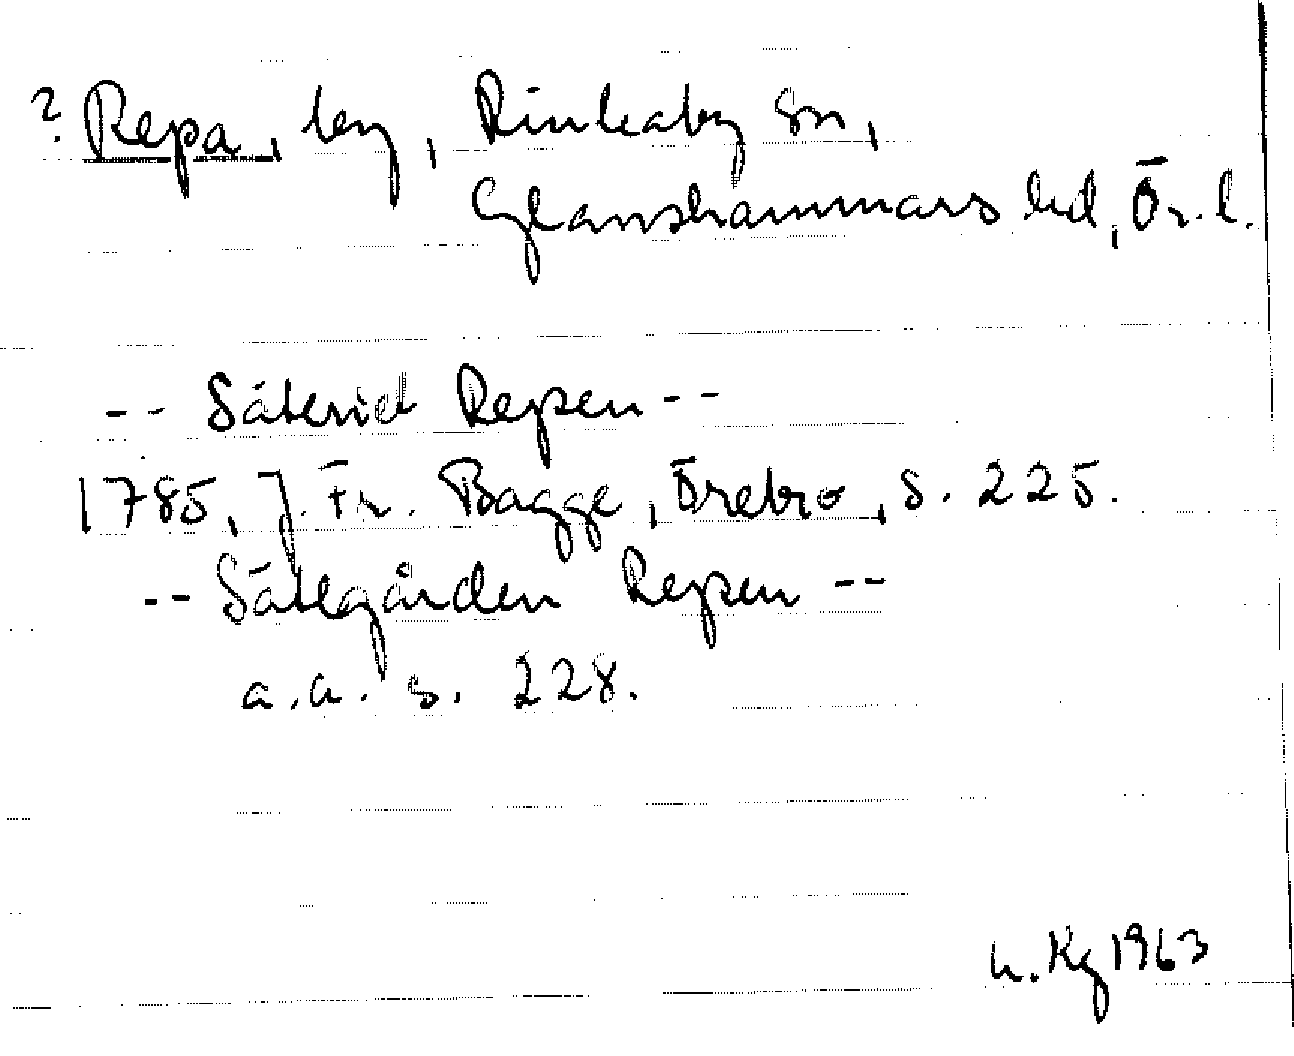 ? Repa, by, Rinkaby sn,
Glanshammars hd, Ör. l.
-- Säteriet Repsen --
1785, J. Fr. Bagge, Örebro, s. 225.
-- Sätegården Repsen --
a.a. s. 228.
Kg 1963